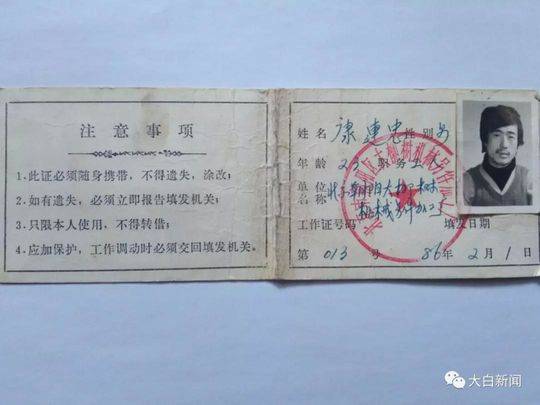 注意事项
1、此证必须随身携带，不得遗失，涂改；
2、如有遗失，必须立即报告填发机关；
3、只限本人使用，不得转借；
4、应加保护，工作调动时必须交回填发机关。
姓名 康连忠 性别 男
年龄 23 职务 工人
单位名称
工作证号码 填发日期
第 013 号 86年2月1日
大白新闻